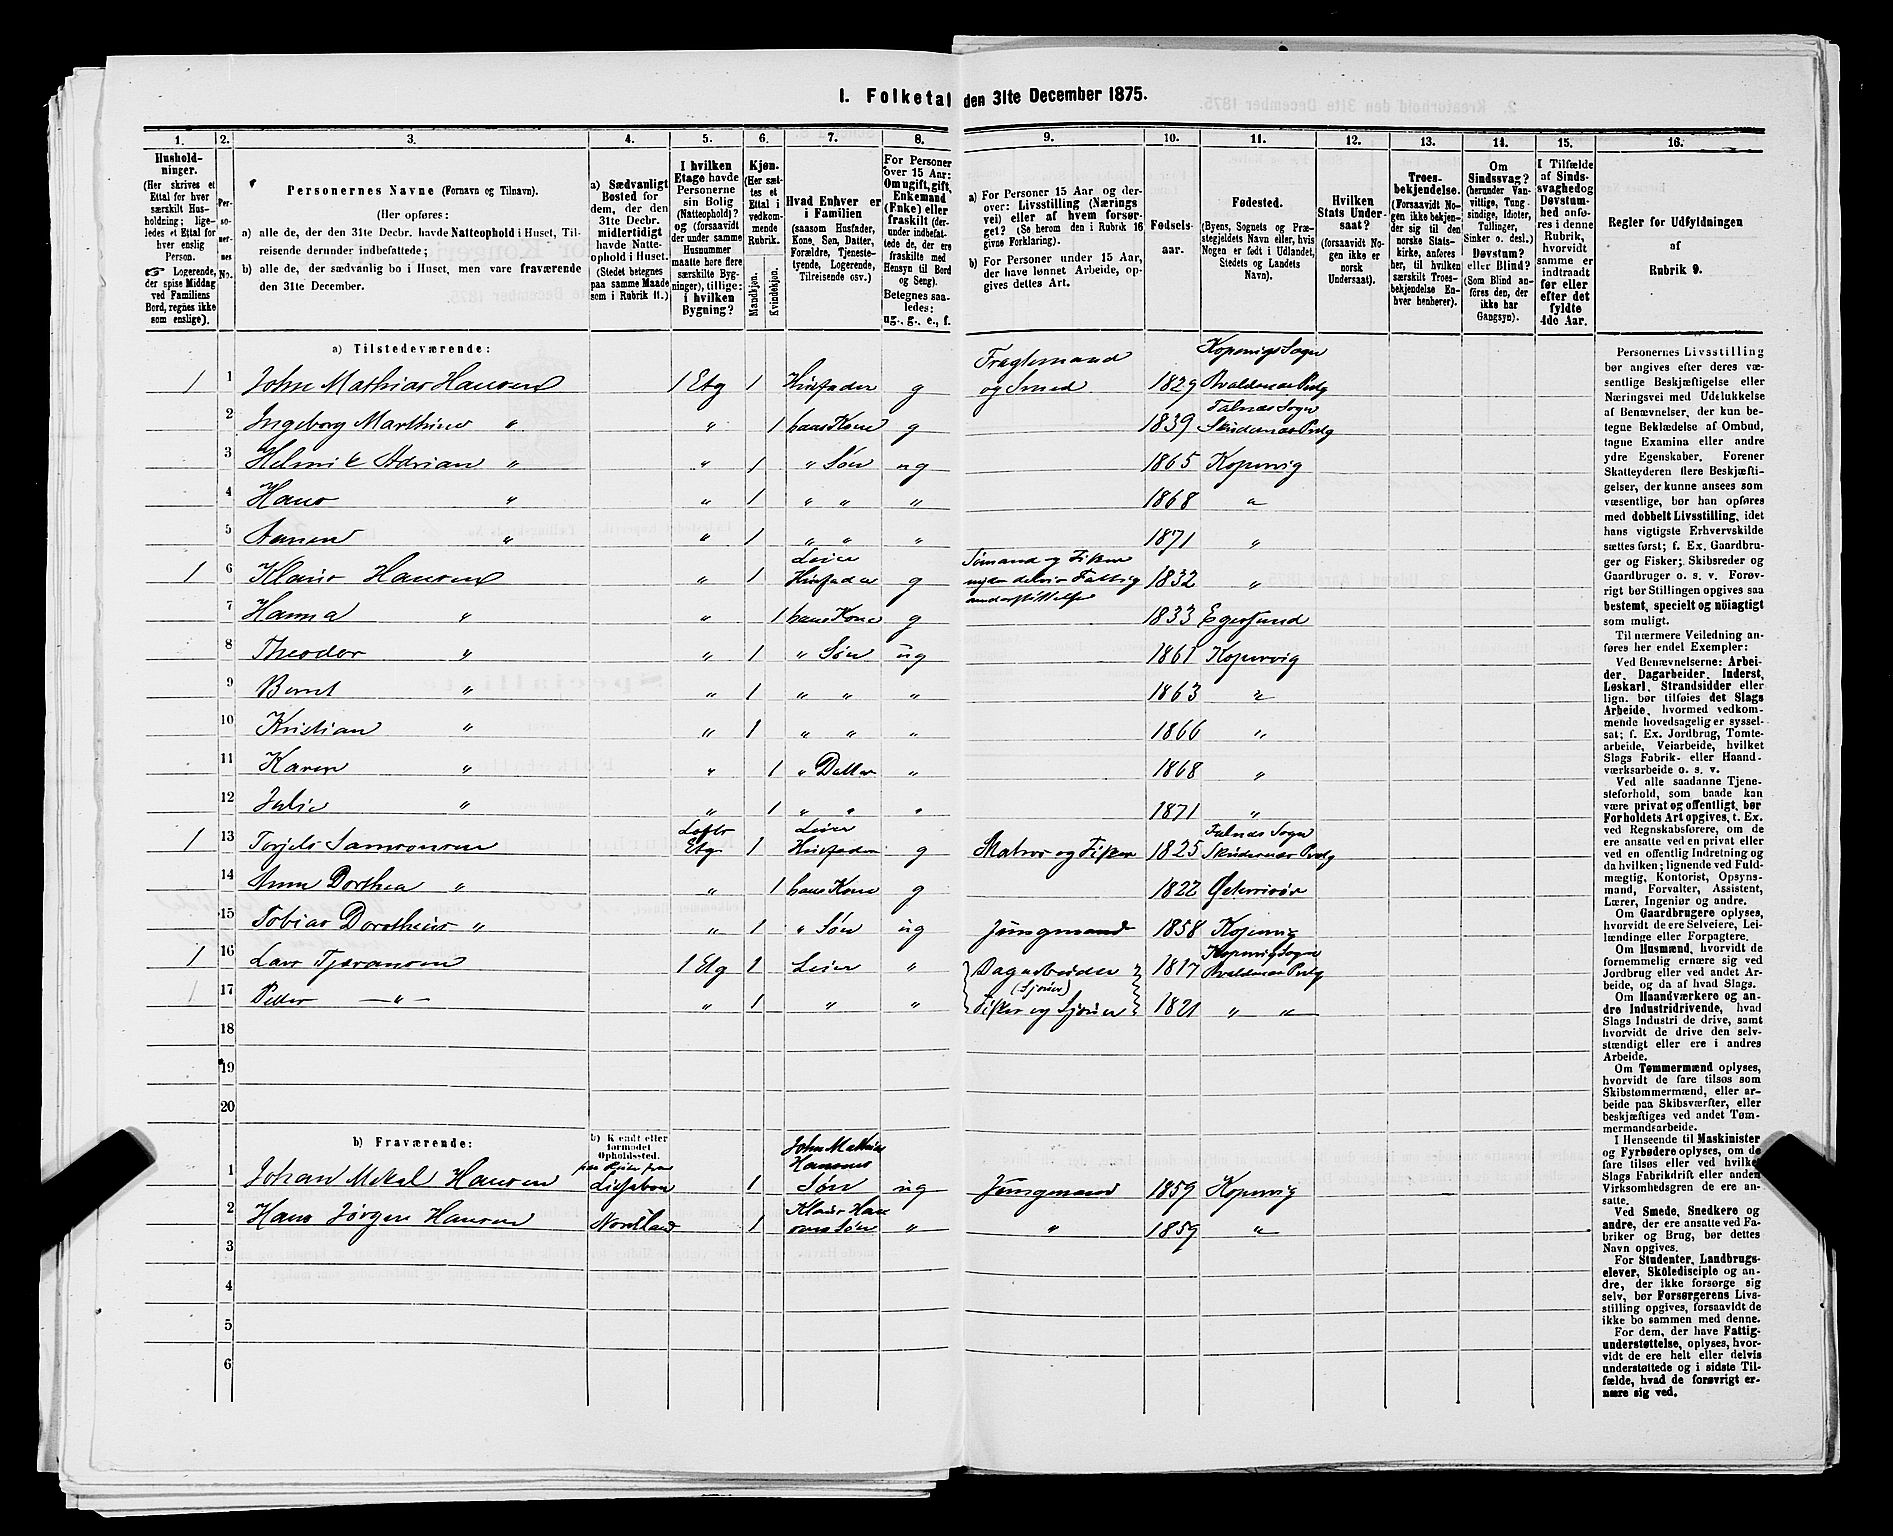 I. Folketal den 31te December 1875.
1. 2. 3. 4. 5. 6. 7. 8. 9. 10. 11. 12. 13. 14. 15. 16.
Husholdninger.
(Her skrives et Ettal for hver særskilt Husholdning; ligeledes et Ettal for hver enslig Person.
☞ Logerende, der spise Middag ved Familiens Bord, regnes ikke som enslige).
Personernes No.
Personernes Navne (Fornavn og Tilnavn).
(Her opføres:
a) alle de, der den 31te Decbr. havde Natteophold i Huset, Tilreisende derunder indbefattede;
b) alle de, der sædvanlig bo i Huset, men vare fraværende den 31te December.
a) Sædvanligt Bosted for dem, der den 31te Decbr. midlertidigt havde Natteophold i Huset.
(Stedet betegnes paa samme Maade som i Rubrik 11.)
I hvilken Etage havde Personerne sin Bolig (Natteophold)? og (forsaavidt der under samme Husnummer maatte høre flere særskilte Bygninger), tillige: i hvilken Bygning?
Kjøn.
(Her sættes et Ettal i vedkommende Rubrik.
Mandkjøn. Kvindekjøn.
Hvad Enhver er i Familien
(saasom Husfader, Kone, Søn, Datter, Forældre, Tjenestetyende, Logerende, Tilreisende osv.)
For Personer over 15 Aar: Om ugift, gift, Enkemand (Enke) eller fraskilt (derunder indbefattede de, der ere fraskilte med Hensyn til Bord og Seng).
Betegnes saaledes: ug., g., e., f.
a) For Personer 15 Aar og derover: Livsstilling (Næringsvei) eller af hvem forsørget? (Se herom den i Rubrik 16 givne Forklaring).
b) For Personer under 15 Aar, der have lønnet Arbeide, opgives dettes Art.
Fødselsaar.
Fødested.
(Byens, Sognets og Præstegjeldets Navn eller, hvis Nogen er født i Udlandet, Stedets og Landets Navn).
Hvilken Stats Undersaat?
(forsaavidt Nogen ikke er norsk Undersaat).
Troesbekjendelse.
(Forsaavidt Nogen ikke bekjender sig til den norske Statskirke, anføres her, til hvilken særskilt Troesbekjendelse Enhver henhører).
Om Sindssvag?
(herunder Vanvittige, Tungsindige, Idioter, Tullinger, Sinker o. desl.)
Døvstum?
eller Blind?
(Som Blind anføres den, der ikke har Gangsyn).
I Tilfælde af Sindssvaghed og Døvstumhed anføres i denne Rubrik, hvorvidt samme er indtraadt før eller efter det fyldte 4de Aar.
Regler for Udfyldningen af Rubrik 9.
a) Tilstedeværende:
1 1 John Mathias Hansen 1 Etg 1 Husfader g Fragtemand og Smed 1829 Kopervigs Sogn Avaldsnæs Pstg
2 Ingeborg Marthine " " 1 hans Kone g 1839 Falnæs Sogn Skudesnæs Pstg
3 Helmik Adrian " " 1 " Søn ug 1865 Kopervig
4 Hans " " 1 " " " 1868 "
5 Aanen " " 1 " " " 1871 "
1 6 Klaus Hansen " 1 Leier Husfader g Sømand og Fisker nyder delvis Fattigunderstøttelse 1832 "
7 Hanna " " 1 hans Kone g 1833 Egersund
8 Theodor " " 1 " Søn ug 1861 Kopervig
9 Bernt " " 1 " " " 1863 "
10 Kristian " " 1 " " " 1866 "
11 Karen " " 1 " Datter " 1868 "
12 Julie " " 1 " " " 1871 "
1 13 Torjels Samsonsen Lofts Etg 1 Leier Husfader g Matros og Fisker 1825 Falnæs Sogn Skudesnæs Pstg
14 Anna Dorthea " " 1 hans Kone g 1822 Østerrisør
15 Tobias Dorotheus " " 1 " Søn ug Jungmand 1858 Kopervig
1 16 Lars Tjøransen 1 Etg 1 Leier " Dagarbeider (Sjouer) 1817 Kopervigs Sogn Avaldsnæs Pstg
1 17 Peder —"— " 1 " " Fisker og Sjouer 1821 " "
18
19
20
b) Fraværende:
b) Kjendt eller formodet Opholdssted.
1 Johan Mikal Hansen paa Reise fra Lissabon 1 John Mathias Hansens Søn ug Jungmand 1859 Kopervig
2 Hans Jørgen Hansen Nordland 1 Klaus Hansens Søn " " 1859 "
3
4
5
6
Personernes Livsstilling bør angives efter deres væsentlige Beskjæftigelse eller Næringsvei med Udelukkelse af Benævnelser, der kun betegne Beklædelse af Ombud, tagne Examina eller andre ydre Egenskaber. Forener Skatteyderen flere Beskjæftigelser, der kunne ansees som væsentlige, bør han opføres med dobbelt Livsstilling, idet hans vigtigste Erhvervskilde sættes først; f. Ex. Gaardbruger og Fisker; Skibsreder og Gaardbruger o. s. v. Forøvrigt bør Stillingen opgives saa bestemt, specielt og nöiagtigt som muligt.
Til nærmere Veiledning anføres her endel Exempler:
Ved Benævnelserne: Arbeider, Dagarbeider, Inderst, Løskarl, Strandsidder eller lign. bør tilføies det Slags Arbeide, hvormed vedkommende hovedsagelig er sysselsat; f. Ex. Jordbrug, Tomtearbeide, Veiarbeide, hvilket Slags Fabrik- eller Haandværksarbeide o. s. v.
Ved alle saadanne Tjenesteforhold, som baade kan være privat og offentligt, bør Forholdets Art opgives, t. Ex. ved Regnskabsførere, om de ere ansatte ved en privat eller ved en offentlig Indretning og da hvilken; lignende ved Fuldmægtig, Kontorist, Opsynsmand, Forvalter, Assistent, Lærer, Ingeniør og andre.
Om Gaardbrugere oplyses, hvorvidt de ere Selveiere, Leilændinge eller Forpagtere.
Om Husmænd, hvorvidt de fornemmelig ernære sig ved Jordbrug eller ved andet Arbeide, og da af hvad Slags.
Om Haandværkere og andre Industridrivende, hvad Slags Industri de drive, samt hvorvidt de drive den selvstændigt eller ere i andres Arbeide.
Om Tømmermænd oplyses, hvorvidt de fare tilsøs som Skibstømmermænd, eller arbeide paa Skibsværfter, eller beskjæftiges ved andet Tømmermandsarbeide.
I Henseende til Maskinister og Fyrbødere oplyses, om de fare tilsøs eller ved hvilket Slags Fabrikdrift eller anden Virksomhedsgren de ere ansatte.
Ved Smede, Snedkere og andre, der ere ansatte ved Fabriker og Brug, bør dettes Navn opgives.
For Studenter, Landbrugselever, Skoledisciple og andre, der ikke forsørge sig selv, bør Forsørgerens Livsstilling opgives, forsaavidt de ikke bo sammen med denne.
For dem, der have Fattigunderstøttelse, oplyses, hvorvidt de ere helt eller delvis understøttede og i sidste Tilfælde, hvad de forøvrigt ernære sig ved.